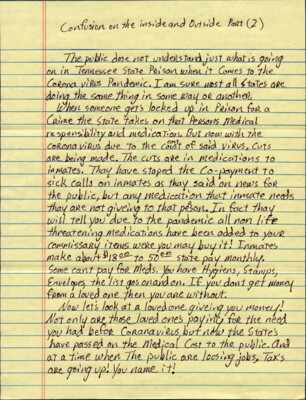 Confusion on the inside and Outside Part (2)
The public dose not understand just what is going
on in Tennessee State Prison when it Comes to the
Corona virus Pandemic. I am sure most all states are
doing the same thing in some way or another.
When someone gets locked up in Prison for a
Crime the State takes on that Persons Medical
responsibility and medication. But now with the
coronavirus due to the cost of said virus, cuts
are being made. The cuts are in medications to
inmates. They have stoped the Co-payment to
sick calls on inmates as they said on news for
the public, but any medication that inmate needs
they are not giving to that person. In fact they
will tell you due to the pandemic all non life
threatening medications have been added to your
commissary items were you may buy it! Inmates
make about $18.00 to 50.00 state pay monthly.
Some cant pay for Meds. You have Hygiens, Stamps,
Envelopes the list gos on and on. If you don't get money
from a loved one then you are without.
Now let's look at a loved one giveing you money!
Not only are those loved ones paying for the need
you had befor Coronavirus, but now the State's
have passed on the Medical Cost to the public. And
at a time when The public are loosing jobs, Tax's
are going up! You name it!